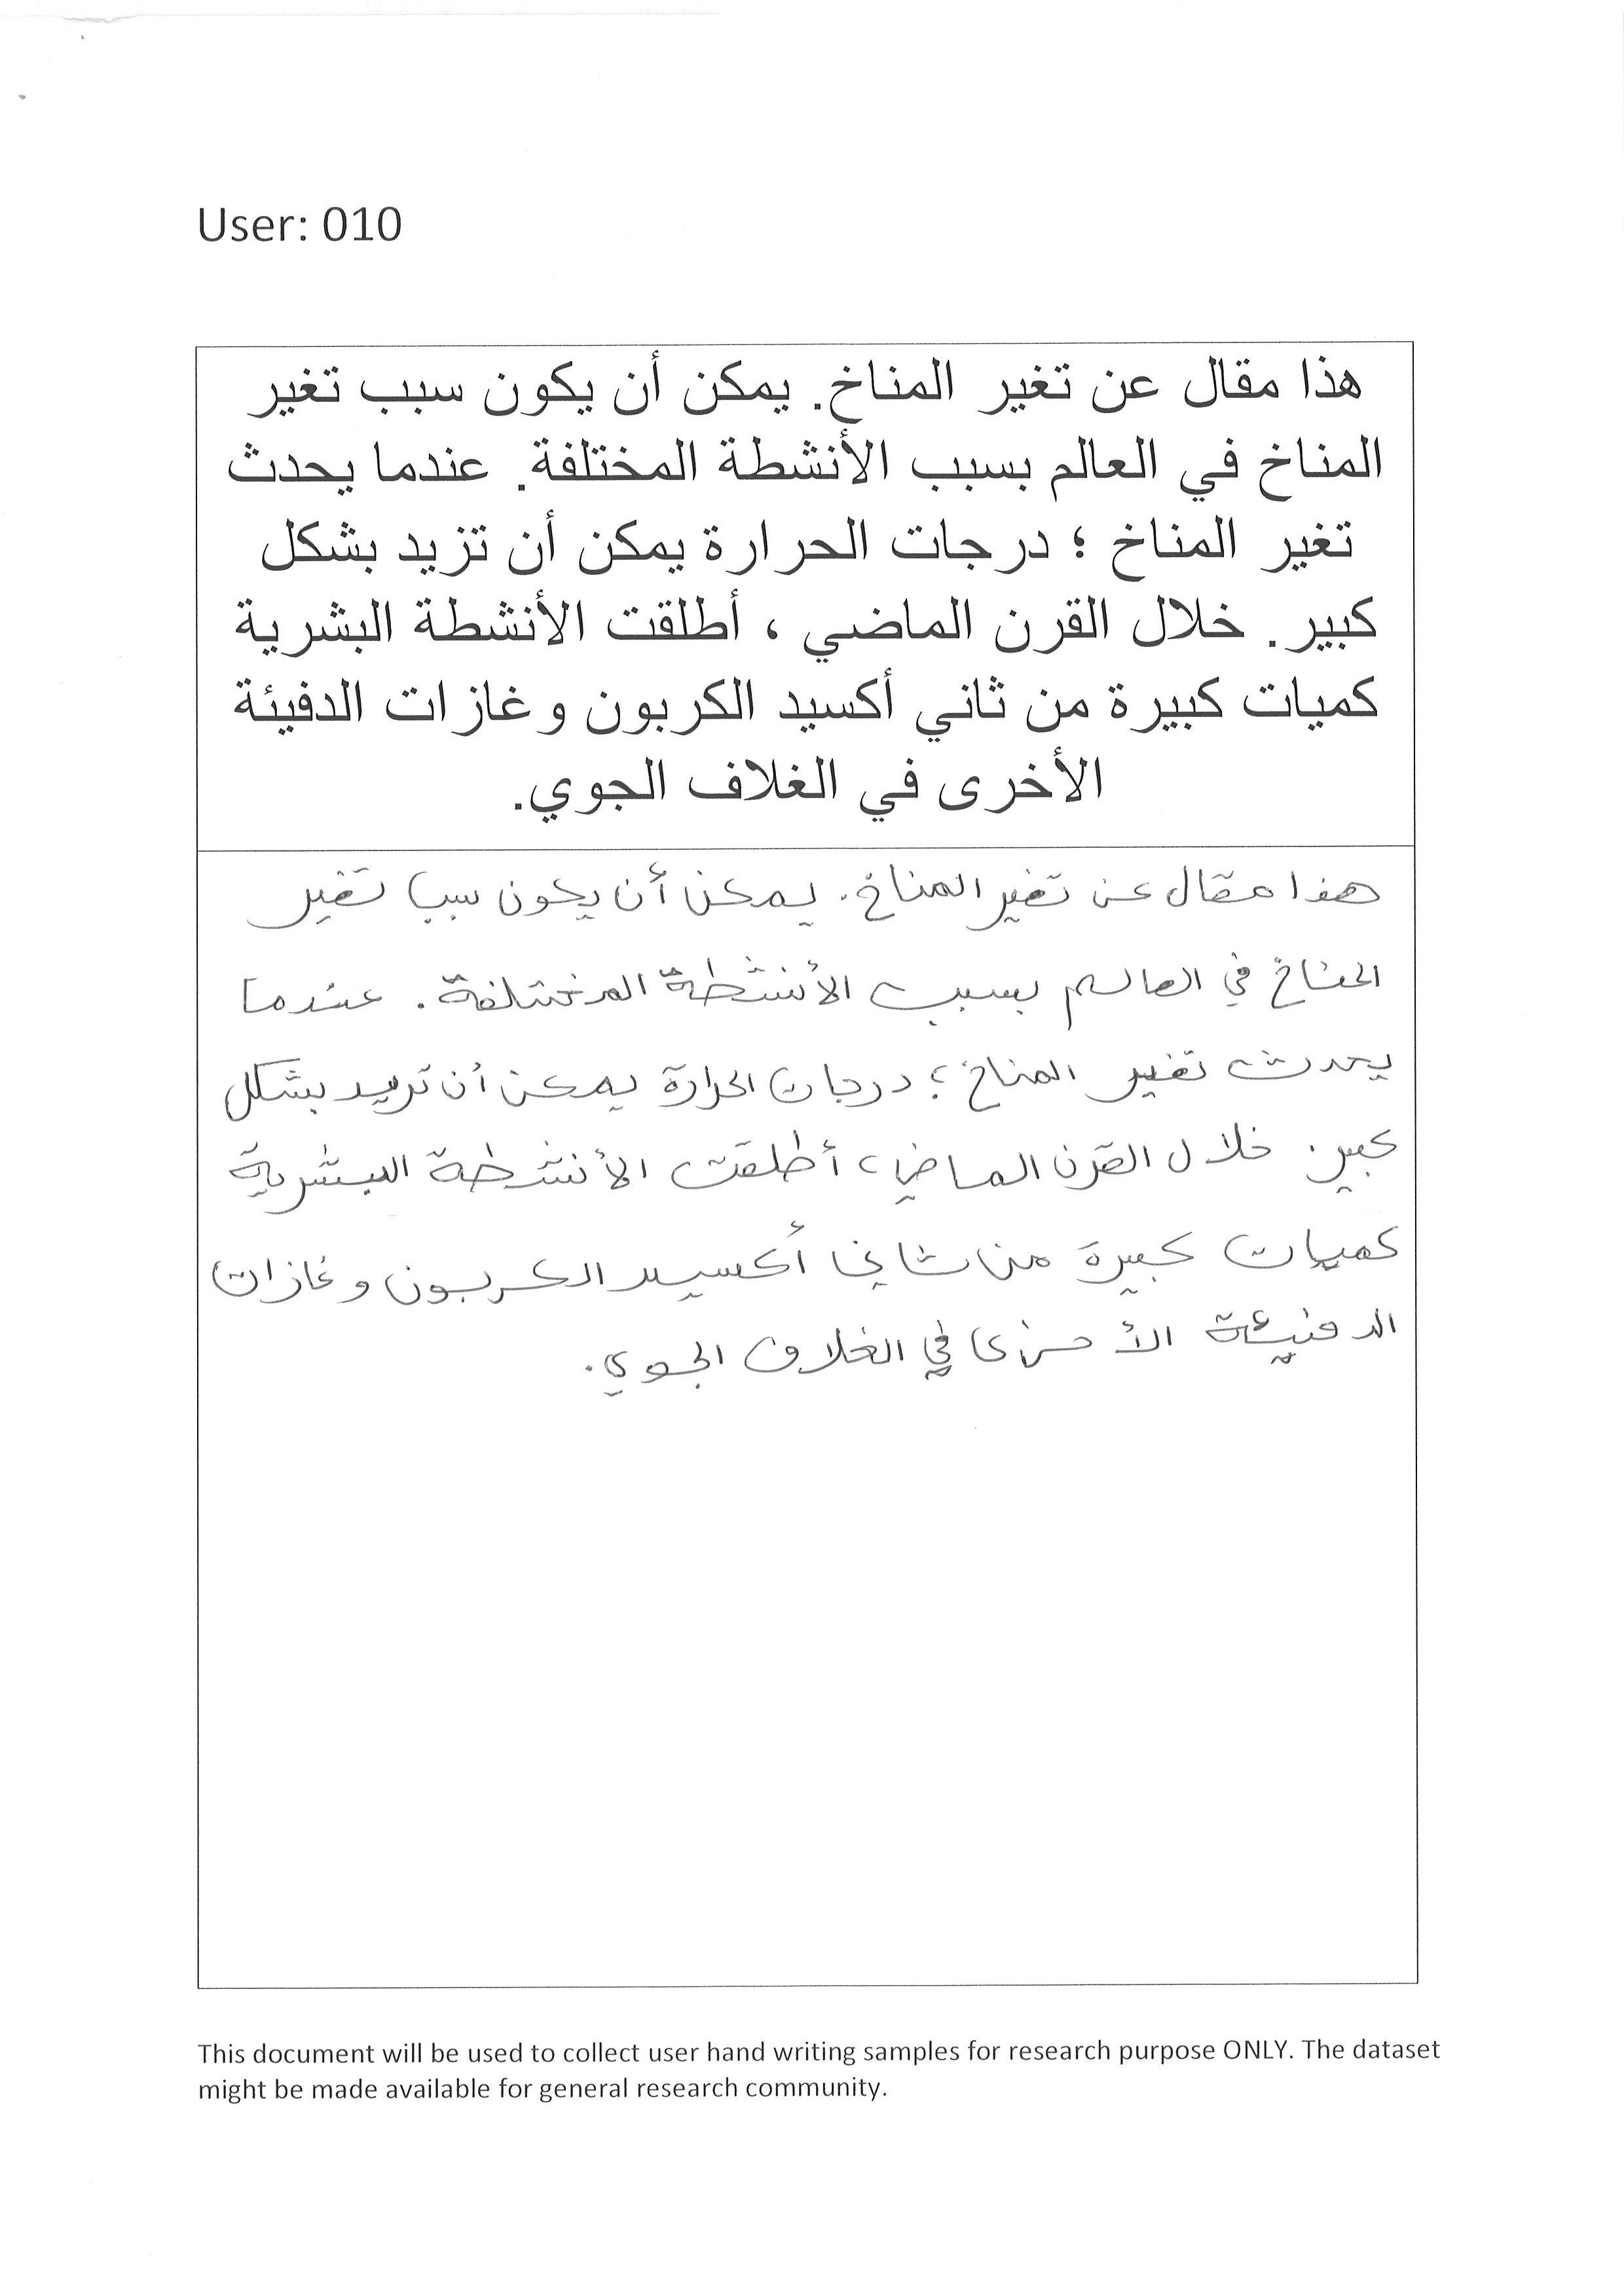 User: 010
هذا مقال عن تغير المناخ. يمكن أن يكون سبب تغير
المناخ في العالم بسبب الأنشطة المختلفة. عندما يحدث
تغير المناخ ؛ درجات الحرارة يمكن أن تزيد بشكل
كبير. خلال القرن الماضي ، أطلقت الأنشطة البشرية
كميات كبيرة من ثاني أكسيد الكربون وغازات الدفيئة
الأخرى في الغلاف الجوي.
هذا مقال عن تغير المناخ. يمكن أن يكون سبب تغير
المناخ في العالم بسبب الأنشطة المختلفة. عندما
يحدث تغير المناخ ؛ درجات الحرارة يمكن أن تزيد بشكل
كبير. خلال القرن الماضي ، أطلقت الأنشطة البشرية
كميات كبيرة من ثاني أكسيد الكربون وغازات
الدفيئة الأخرى في الغلاف الجوي.
This document will be used to collect user hand writing samples for research purpose ONLY. The dataset
might be made available for general research community.